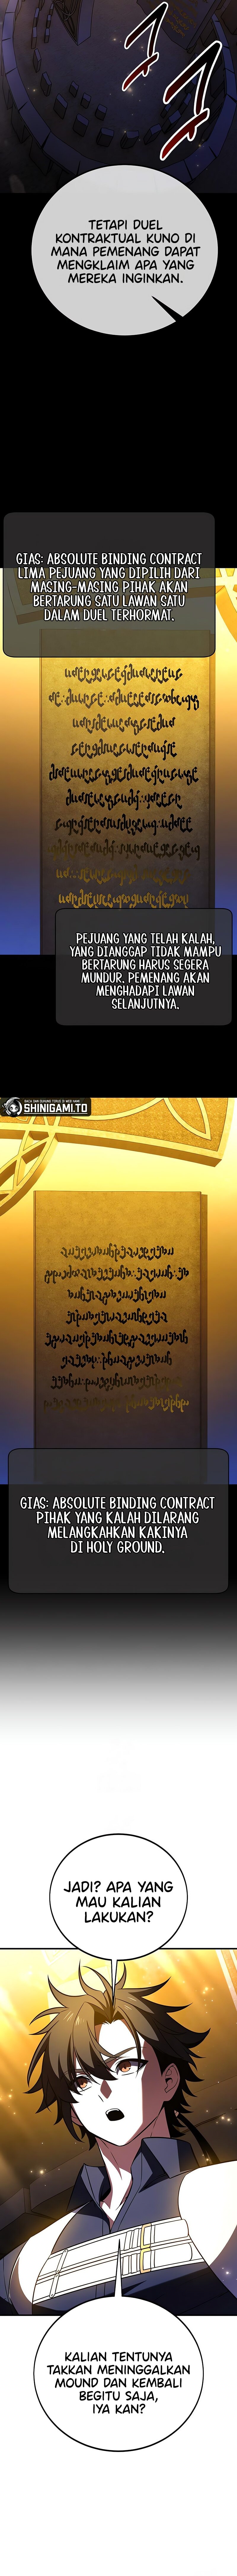 TETAPI DUEL
KONTRAKTUAL KUNO DI
MANA PEMENANG DAPAT
MENGKLAIM APA YANG
MEREKA INGINKAN.
GIAS: ABSOLUTE BINDING CONTRACT
LIMA PEJUANG YANG DIPILIH DARI
MASING-MASING PIHAK AKAN
BERTARUNG SATU LAWAN SATU
DALAM DUEL TERHORMAT.
PEJUANG YANG TELAH KALAH,
YANG DIANGGAP TIDAK MAMPU
BERTARUNG HARUS SEGERA
MUNDUR. PEMENANG AKAN
MENGHADAPI LAWAN
SELANJUTNYA.
SHINIGAMI.TO
GIAS: ABSOLUTE BINDING CONTRACT
PIHAK YANG KALAH DILARANG
MELANGKAHKAN KAKINYA
DI HOLY GROUND.
JADI? APA YANG
MAU KALIAN
LAKUKAN?
KALIAN TENTUNYA
TAKKAN MENINGGALKAN
MOUND DAN KEMBALI
BEGITU SAJA,
IYA KAN?